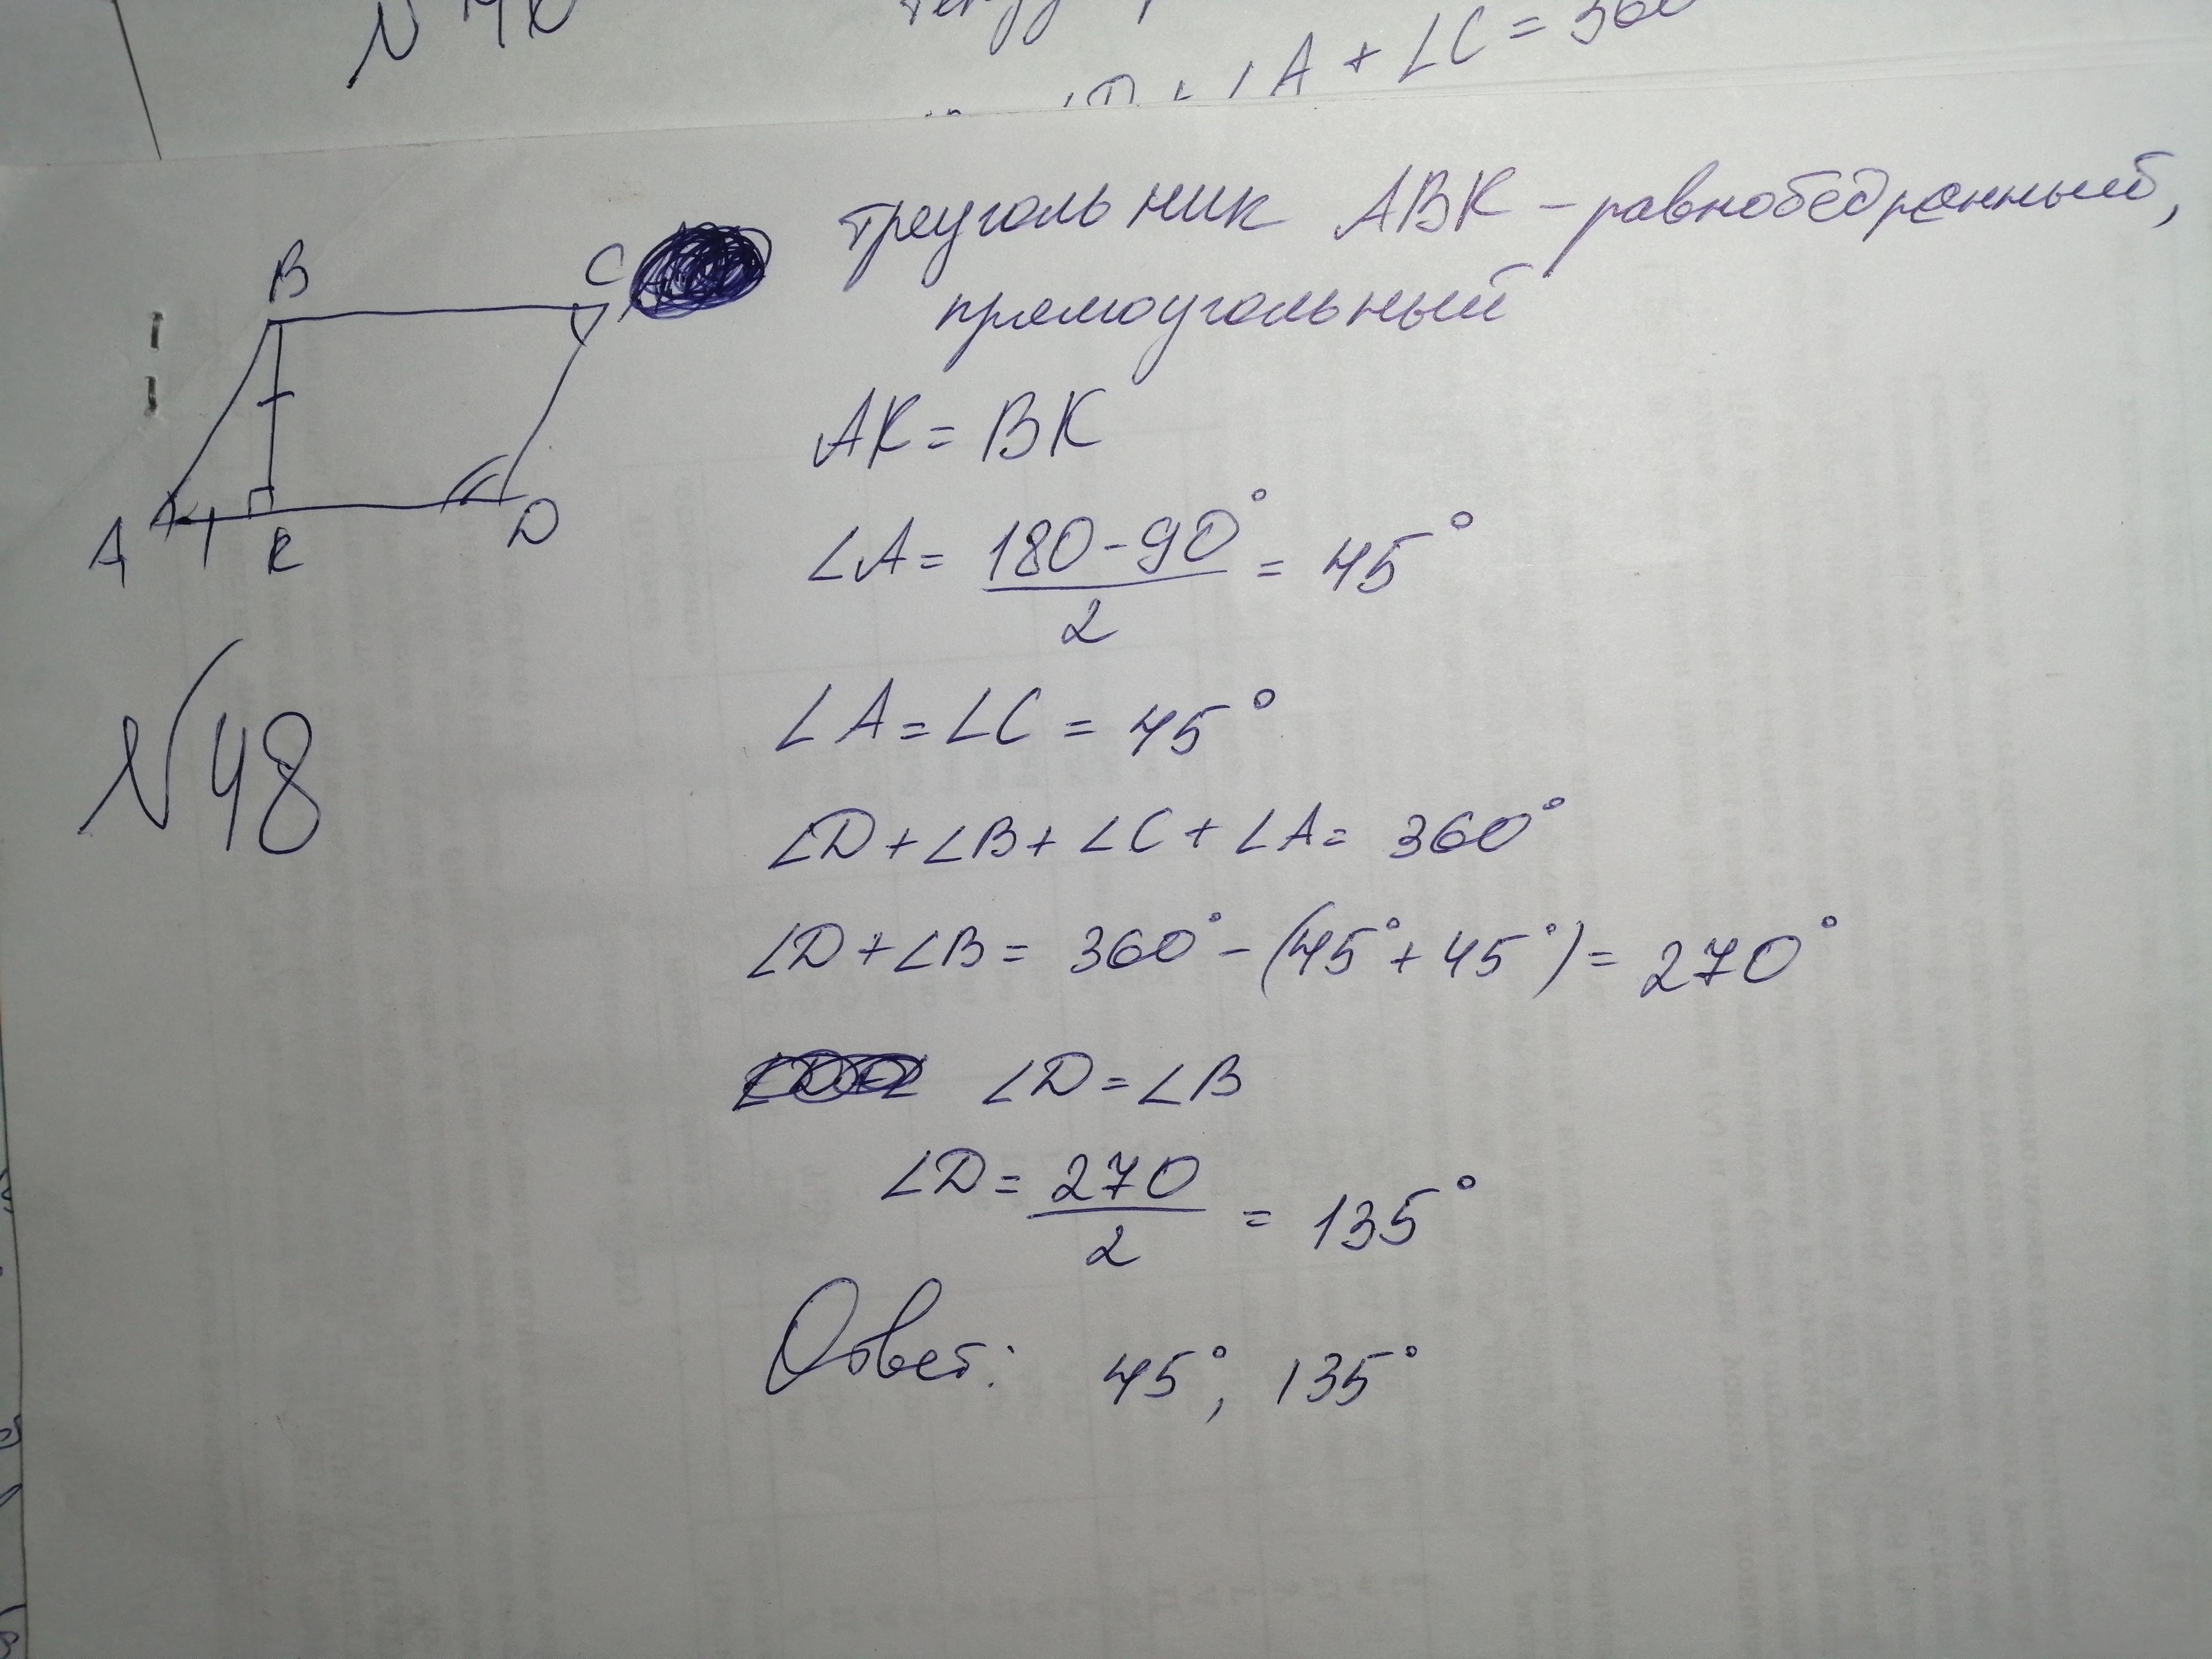 ∠A + ∠C = 360
треугольник ABK - равнобедренный,
прямоугольный
B
C
A
K
D
AK = BK
∠A = 180 - 90° / 2 = 45°
N48
∠A = ∠C = 45°
∠D + ∠B + ∠C + ∠A = 360°
∠D + ∠B = 360° - (45° + 45°) = 270°
∠D = ∠B
∠D = 270 / 2 = 135°
Ответ: 45°, 135°